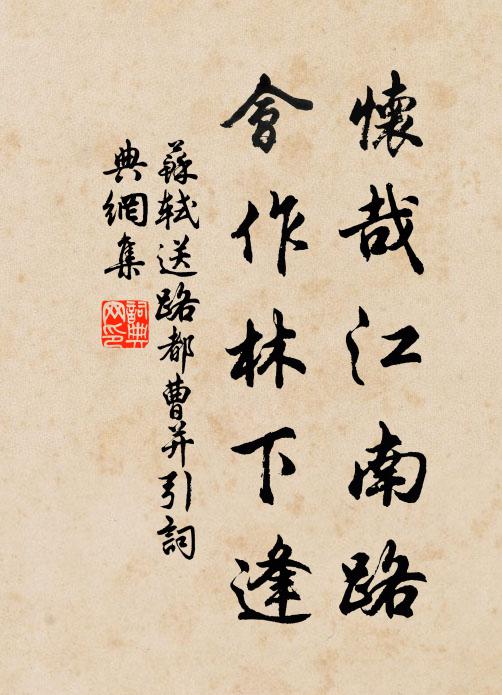 懷哉江南路
會作林下逢
蘇軾送路都曹并引詞
典網集
詞典
网印